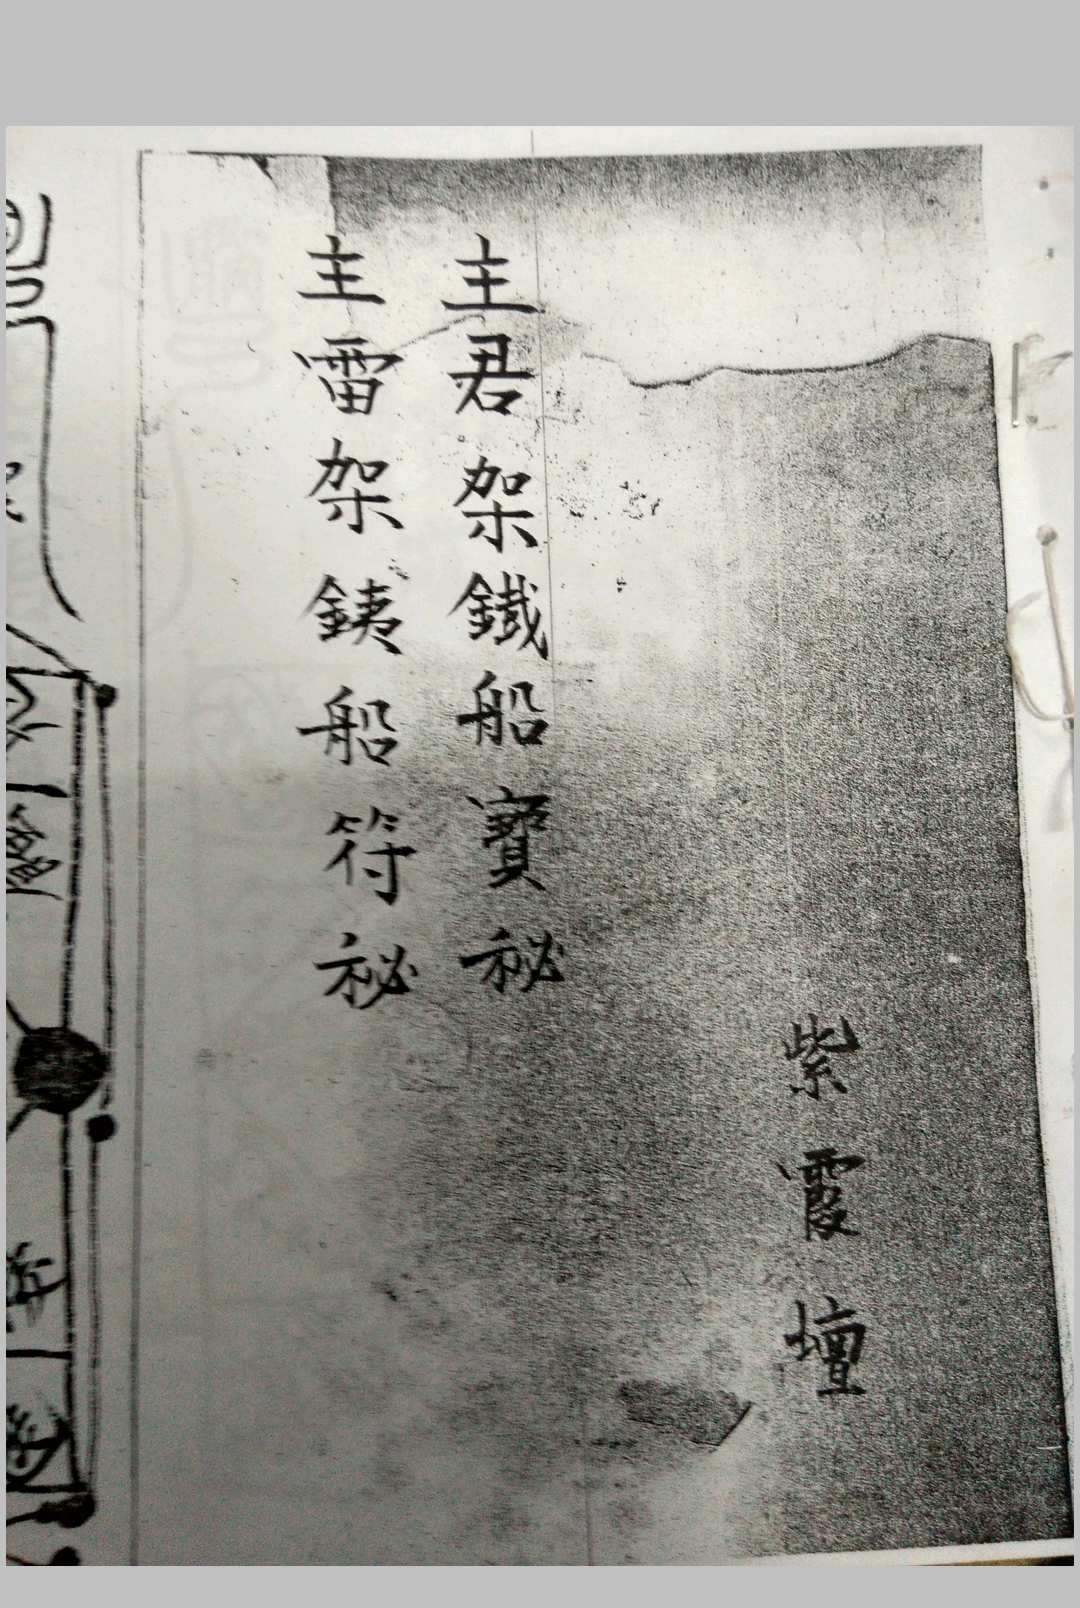 紫霞壇
主君架鐵船寶秘
主雷架銕船符秘